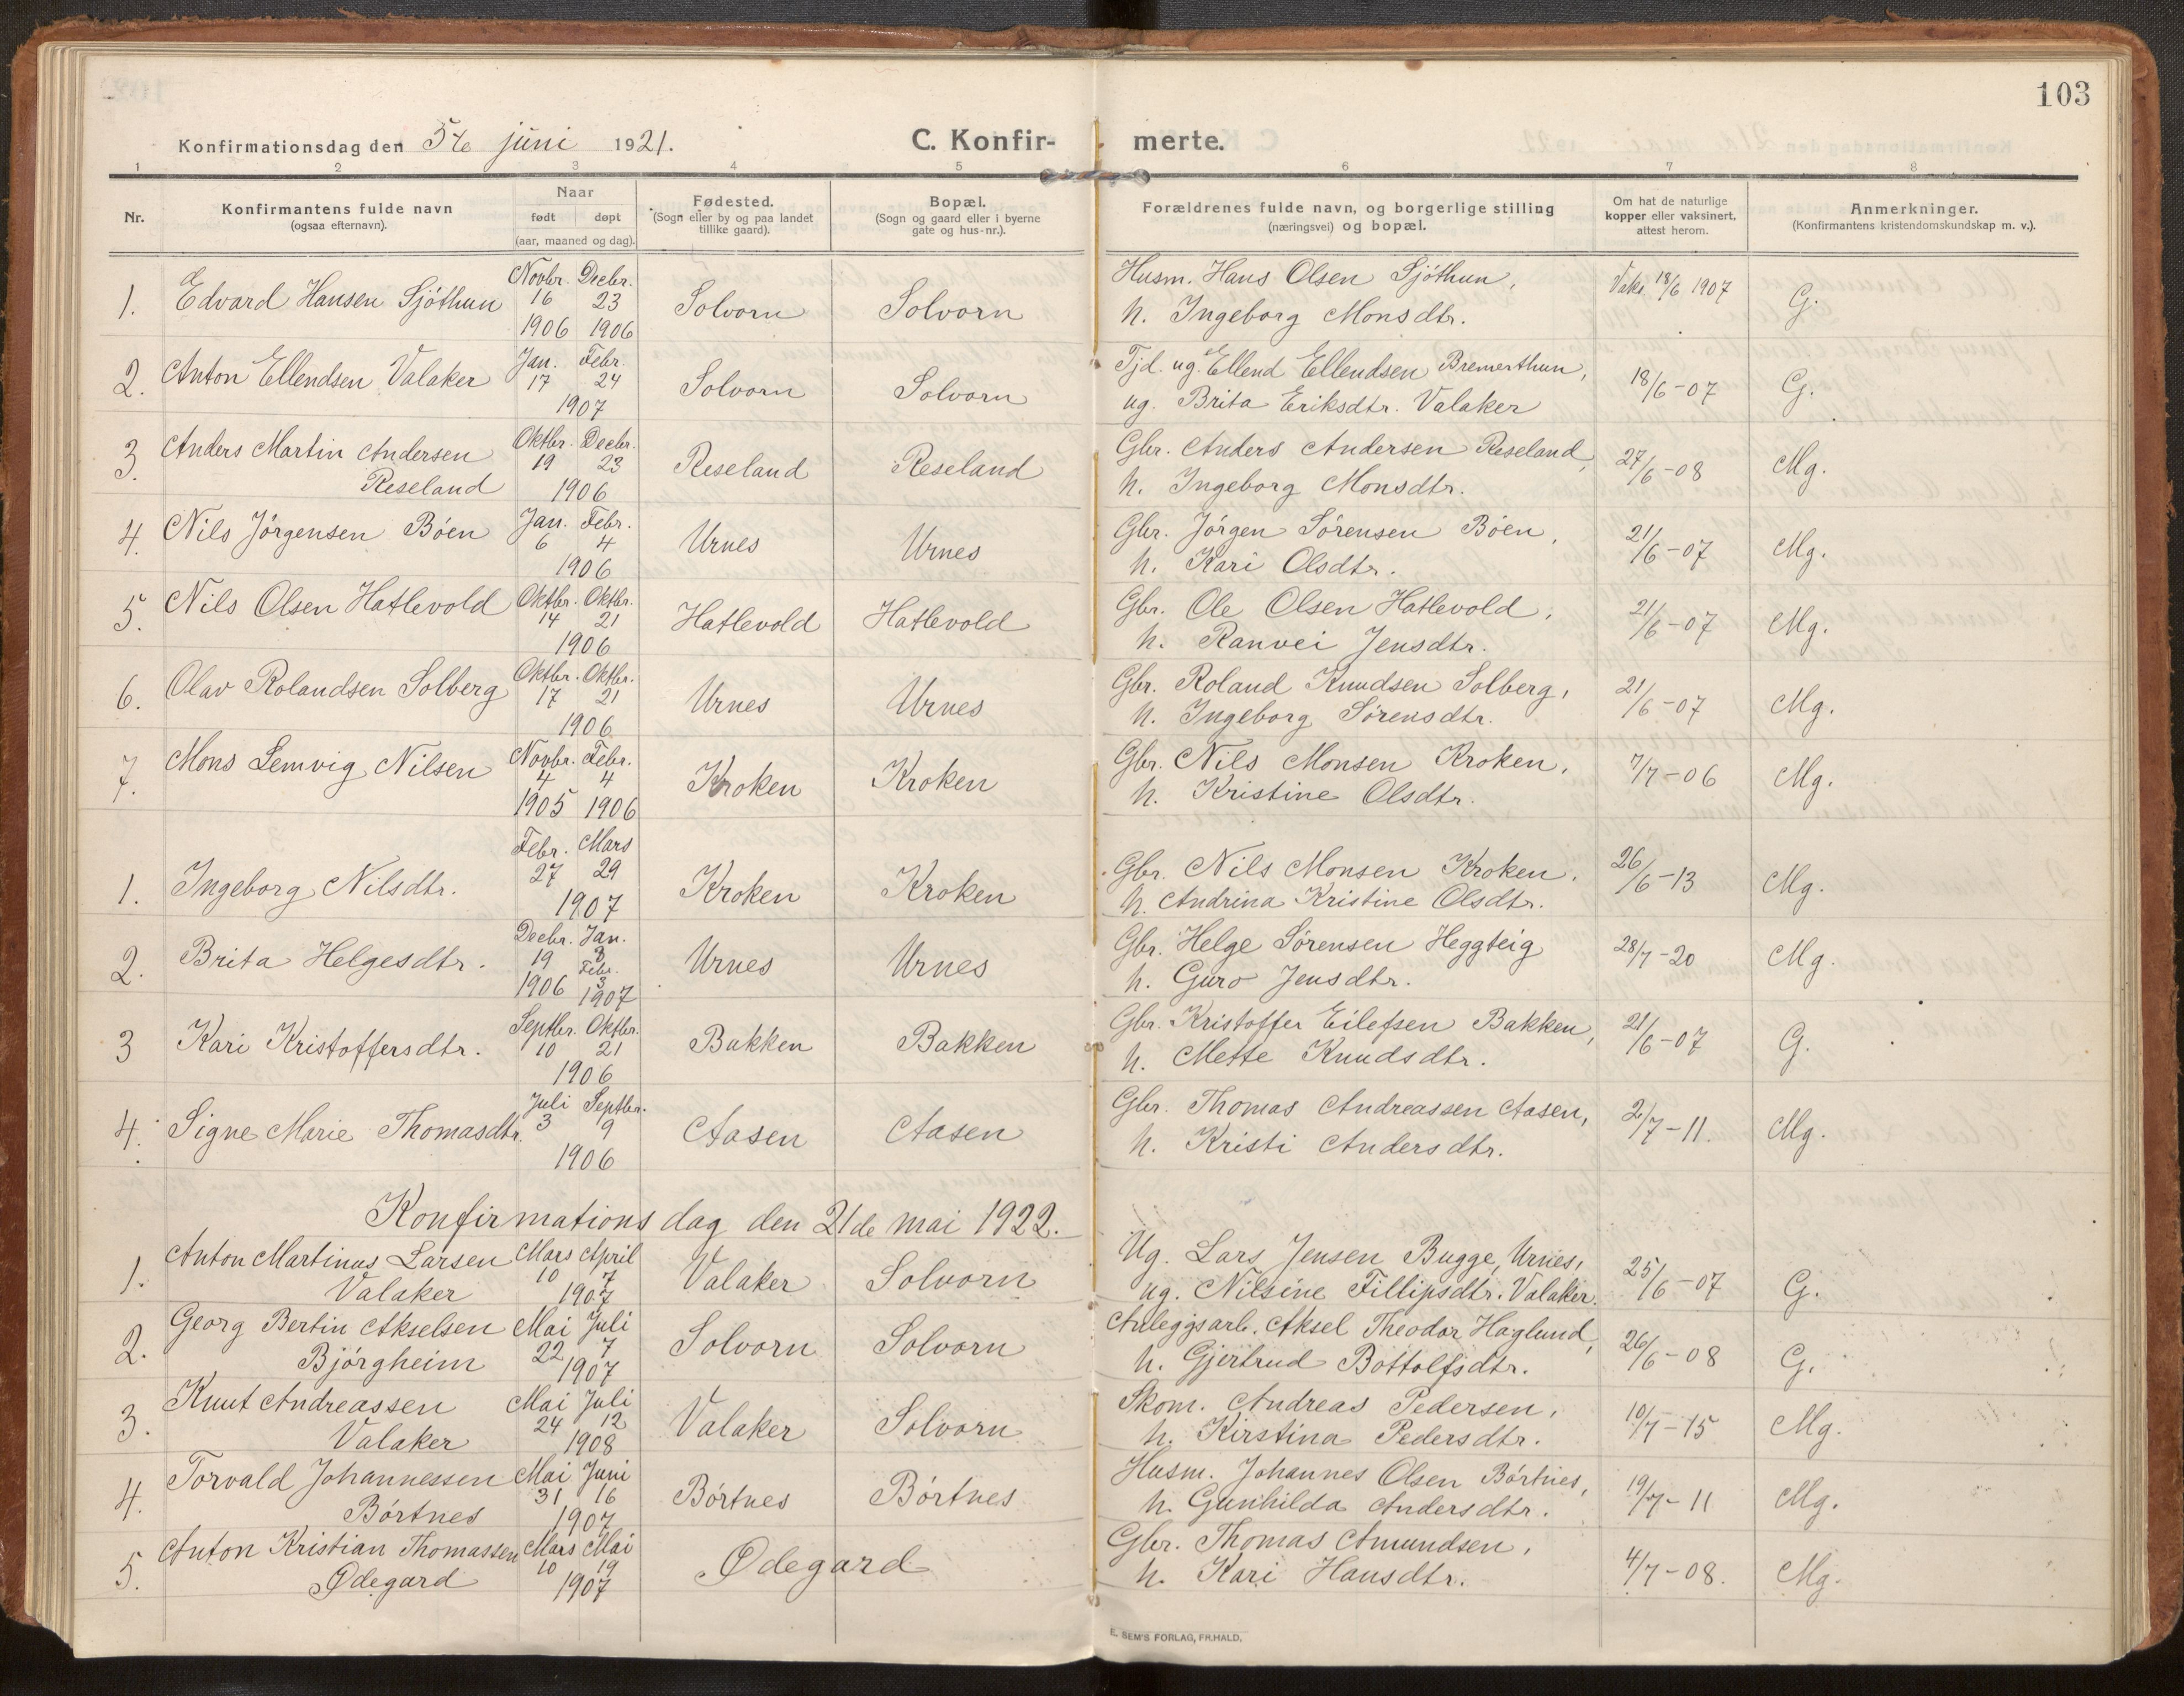 103
Konfirmationsdag den 5te juni 1921. C. Konfir- merte.
1 2 3 4 5 6 7 8
Nr. Konfirmantens fulde navn (ogsaa efternavn). Naar født døpt (aar, maaned og dag). Fødested. (Sogn eller by og paa landet tillike gaard). Bopæl. (Sogn og gaard eller i byerne gate og hus-nr.). Forældrenes fulde navn, og borgerlige stilling (næringsvei) og bopæl. Om hat de naturlige kopper eller vaksinert, attest herom. Anmerkninger. (Konfirmantens kristendomskundskap m. v.).
1. Edvard Hansen Sjøthun Novbr. 16 1906 Decbr. 23 1906 Solvorn Solvorn Husm. Hans Olsen Sjøthun, Vaks. 18/6 1907 G.
h. Ingeborg Monsdtr.
2. Anton Ellendsen Valaker Jan. 17 Febr. 24 1907 Solvorn Solvorn Tjd. ug. Ellend Ellendsen Bremerthun, 18/6-07 G.
ug. Brita Eriksdtr. Valaker
3. Anders Martin Andersen Oktbr. 19 Decbr. 23 1906 Reseland Reseland Gbr. Anders Andersen Reseland, 27/6-08 Mg.
Reseland h. Ingeborg Monsdtr.
4. Nils Jørgensen Bøen Jan. 6 Febr. 4 1906 Urnes Urnes Gbr. Jørgen Sørensen Bøen, 21/6-07 Mg.
h. Kari Olsdtr.
5. Nils Olsen Hatlevold Oktbr. 14 Oktbr. 21 1906 Hatlevold Hatlevold Gbr. Ole Olsen Hatlevold, 21/6-07 Mg.
h. Ranvei Jensdtr.
6. Olav Rolandsen Solberg Oktbr. 17 Oktbr. 21 1906 Urnes Urnes Gbr. Roland Knudsen Solberg, 21/6-07 Mg.
h. Ingeborg Sørensdtr.
7. Mons Lemvig Nilsen Novbr. 4 1905 Febr. 4 1906 Kroken Kroken Gbr. Nils Monsen Kroken, 7/7-06 Mg.
h. Kristine Olsdtr.
1. Ingeborg Nilsdtr. Febr. 27 Mars 29 1907 Kroken Kroken Gbr. Nils Monsen Kroken, 26/6-13 Mg.
h. Andrina Kristine Olsdtr.
2. Brita Helgesdtr. Decbr. 19 1906 Jan. Febr. 3 1907 Urnes Urnes Gbr. Helge Sørensen Heggteig 28/7-20 Mg.
h. Guro Jensdtr.
3 Kari Kristoffersdtr. Septbr. 10 Oktbr. 21 1906 Bakken Bakken Gbr. Kristoffer Eilefsen Bakken, 21/6-07 G.
h. Mette Knudsdtr.
4. Signe Marie Thomasdtr. Juli 3 Septbr. 9 1906 Aasen Aasen Gbr. Thomas Andreassen Aasen, 2/7-11. Mg.
h. Kristi Andersdtr.
Konfirmationsdag den 21de mai 1922.
1. Anton Martinus Larsen Mars 10 April 7 1907 Valaker Solvorn Ug. Lars Jensen Bugge, Urnes, 25/6-07 G.
Valaker ug. Nilsine Fillipsdtr. Valaker.
2. Georg Bertin Akselsen Mai 22 Juli 7 1907 Solvorn Solvorn Anleggsarb. Aksel Theodor Haglund, 26/6-08 G.
Bjørgheim h. Gjertrud Bottolfsdtr.
3. Knut Andreassen Mai 24 Juli 12 1908 Valaker Solvorn Skom. Andreas Pedersen, 10/7-15 Mg.
Valaker h. Kirstina Pedersdtr.
4. Torvald Johannessen Mai 31 Juni 16 1907 Børtnes Børtnes Husm. Johannes Olsen Børtnes, 19/7-11 Mg.
Børtnes h. Gunhilda Andersdtr.
5. Anton Kristian Thomassen Mars 10 Mai 19 1907 Ødegard Gbr. Thomas Amundsen, 4/7-08. Mg.
Ødegard h. Kari Hansdtr.
E. SEM'S FORLAG, FR.HALD.